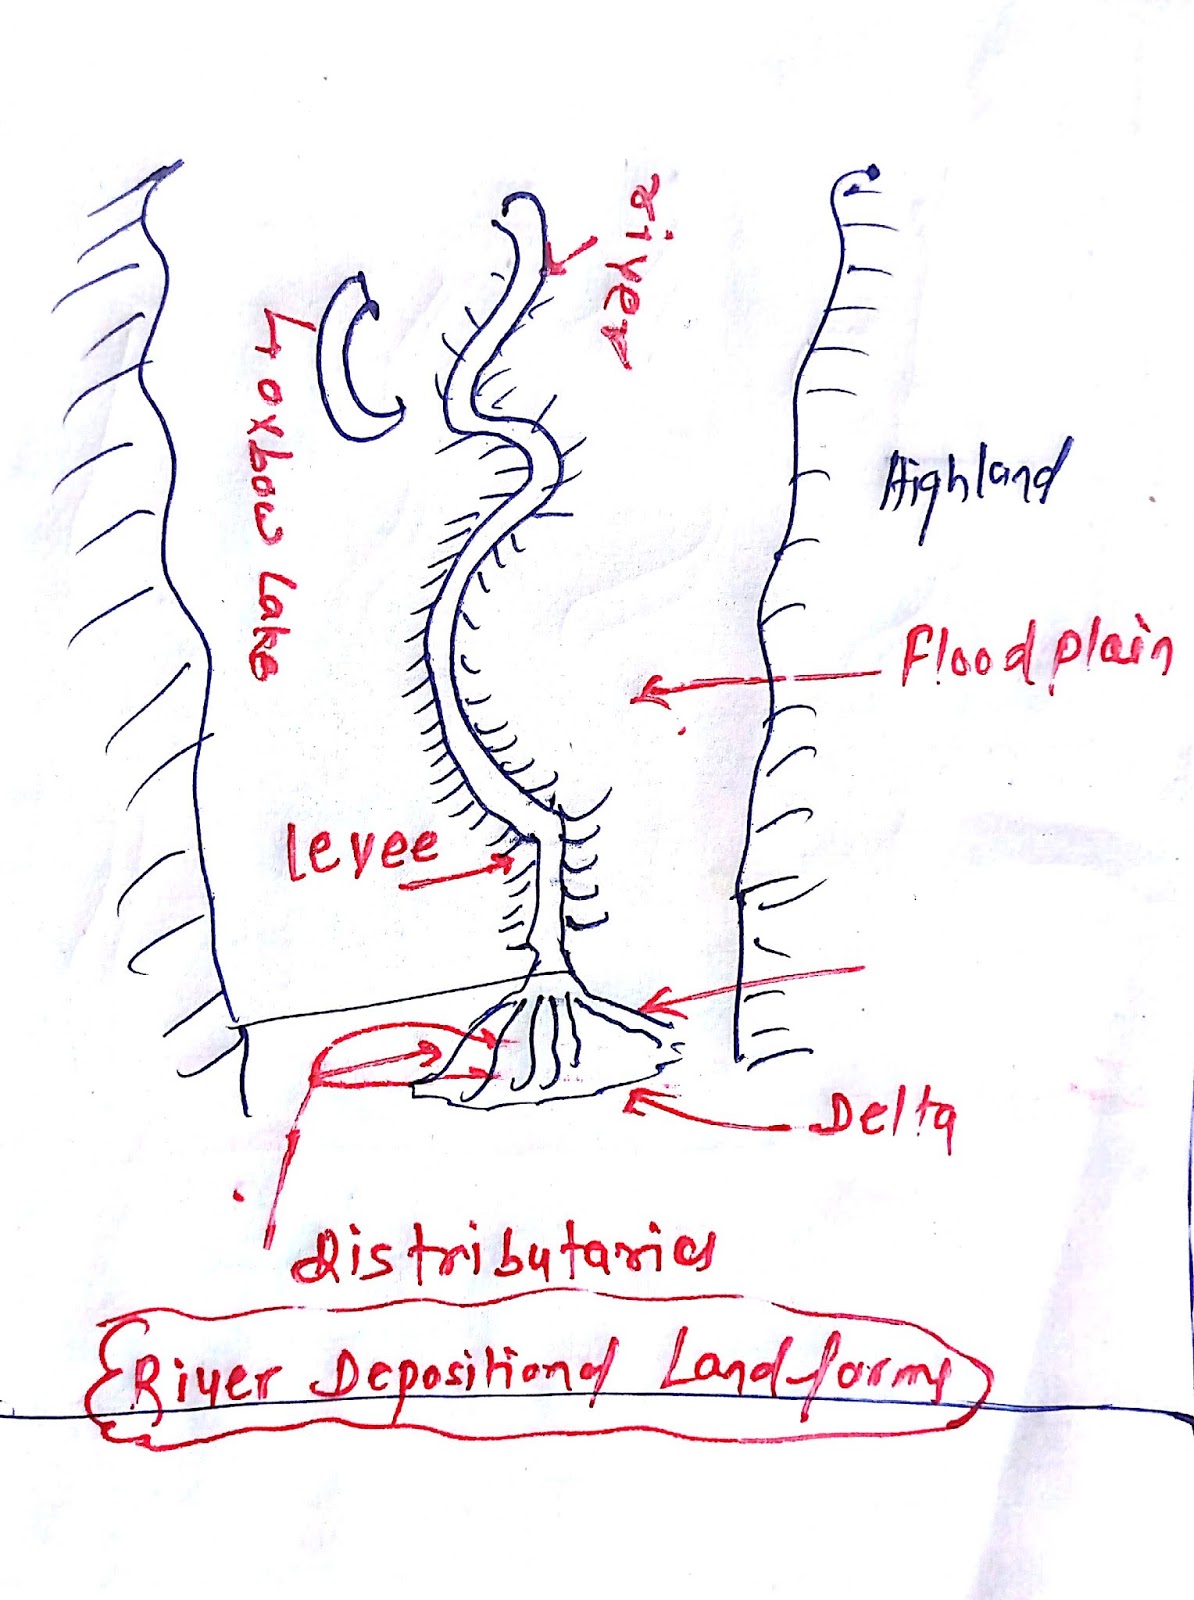 River
oxbow Lake
Highland
Floodplain
levee
Delta
Distributaries
River Depositional Landforms